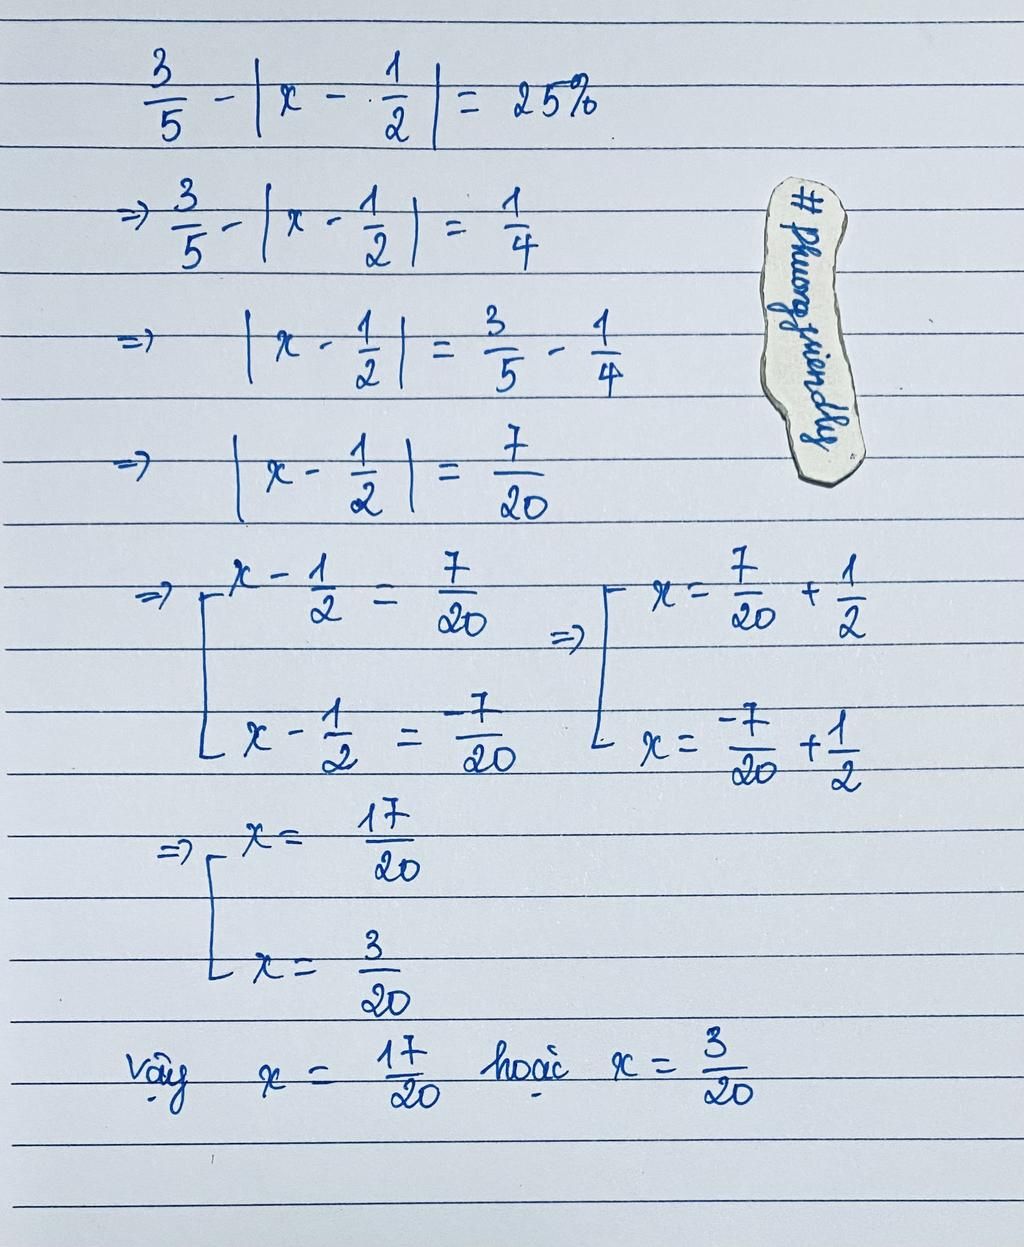 3/5 - |x - 1/2| = 25%
=> 3/5 - |x - 1/2| = 1/4
=> |x - 1/2| = 3/5 - 1/4
=> |x - 1/2| = 7/20
=> [ x - 1/2 = 7/20 => [ x = 7/20 + 1/2
x - 1/2 = -7/20 x = -7/20 + 1/2
=> [ x = 17/20
x = 3/20
Vậy x = 17/20 hoặc x = 3/20
# phuongfriendly